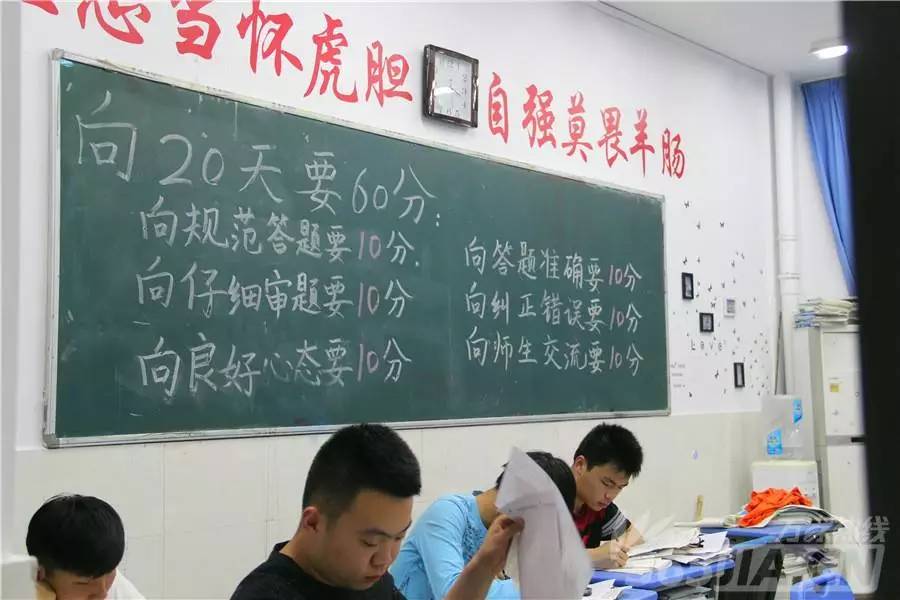 志当怀虎胆 自强莫畏羊肠
向20天要60分:
向规范答题要10分.
向仔细审题要10分
向良好心态要10分
向答题准确要10分
向纠正错误要10分
向师生交流要10分
Love